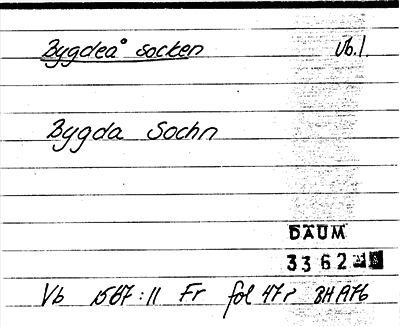 Bygdeå socken Vb.
Bygda Sochn
DAUM
3362
Vb 1567:11 Fr fol 47r BH 1976